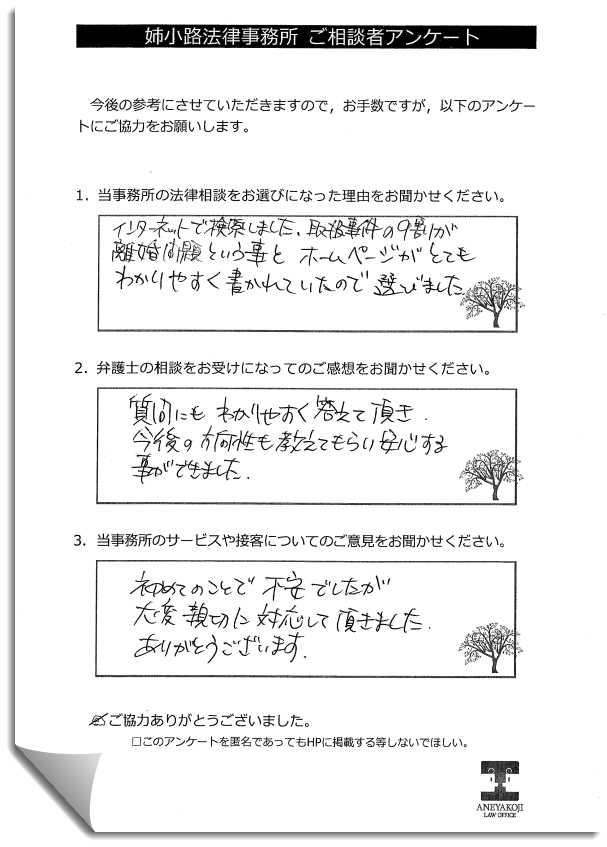 姉小路法律事務所 ご相談者アンケート
今後の参考にさせていただきますので，お手数ですが，以下のアンケー
トにご協力をお願いします。
1．当事務所の法律相談をお選びになった理由をお聞かせください。
インターネットで検索しました。取扱事件の9割が
離婚問題という事と ホームページがとても
わかりやすく書かれていたので 選びました
2．弁護士の相談をお受けになってのご感想をお聞かせください。
質問にも わかりやすく答えて頂き.
今後の方向性も教えてもらい安心する
事ができました.
3．当事務所のサービスや接客についてのご意見をお聞かせください。
初めてのことで 不安でしたが
大変親切に対応して頂きました.
ありがとうございます.
ご協力ありがとうございました。
□このアンケートを匿名であってもHPに掲載する等しないでほしい。
ANEYAKOJI
LAW OFFICE